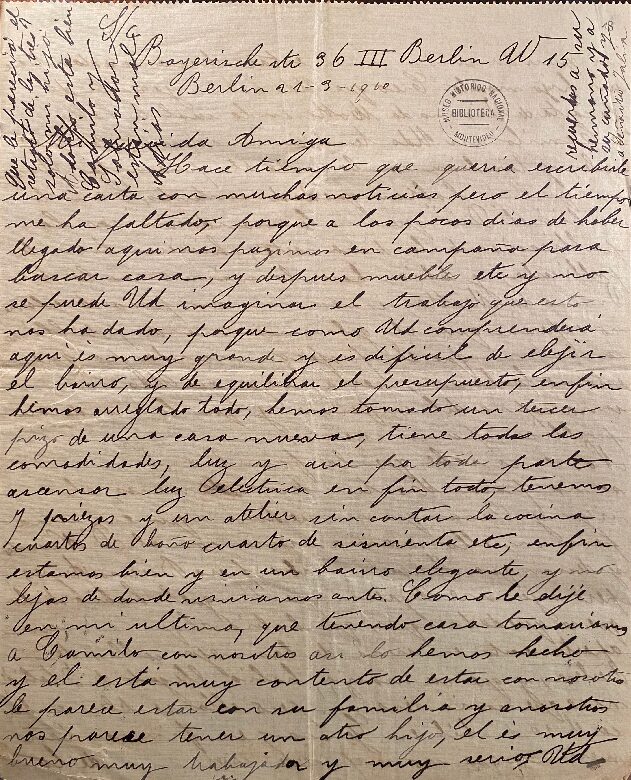 S/c
Bayerische str 36 III Berlin W 15
Berlin 21-3-1910
MUSEO HISTORICO NACIONAL
BIBLIOTECA
MONTEVIDEO
Mi querida Amiga
Hace tiempo que queria escribirle
una carta con muchas noticias pero el tiempo
me ha faltado, porque a los pocos dias de haber
llegado aqui nos pusimos en campaña para
buscar casa, y despues muebles etc y no
se puede Ud imaginar el trabajo que esto
nos ha dado, porque como Ud comprenderá
aqui es muy grande y es dificil de elejir
el bairo, y de equilibrar el presupuesto, enfin
hemos arreglado todo, hemos tomado un tercer
pizo de una casa nueva, tiene todas las
comodidades, luz y aire por toda parte
ascensor luz electrica en fin todo, tenemos
7 piezas y un atelier sin contar la cocina
cuartos de baño cuarto de sirvienta etc, enfin
estamos bien y en un bairo elegante, y no
lejos de donde viviamos antes. Como le dije
en mi ultima, que teniendo casa tomariamos
a Camilo con nosotros asi lo hemos hecho
y el esta muy contento de estar con nosotros
le parece estar con su familia y a nosotros
nos parece tener un otro hijo, el es muy
bueno muy trabajador y muy serio, Ud
que le parecerá el
retrato de los tres
solo mi hijo
Adolfo esta bien
Camilo y
Salvador
estan mal
recuerdos a su
hermano y a
su cuñado y